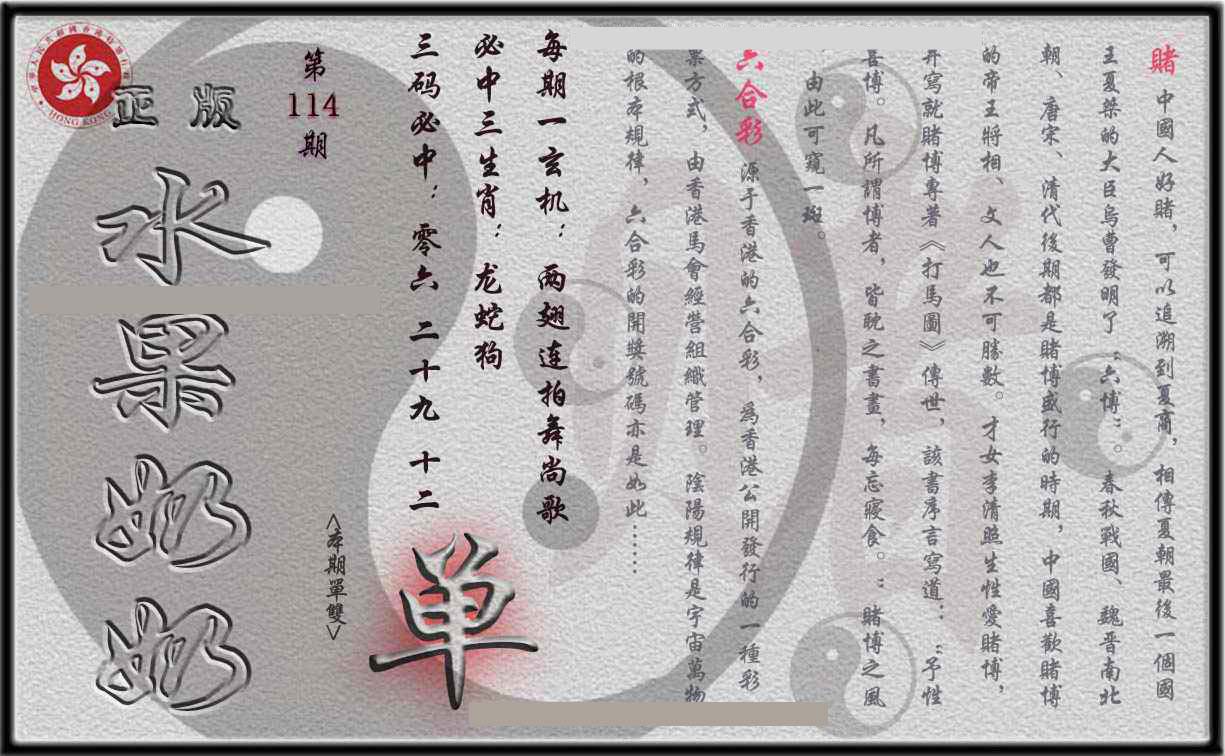 賭 中國人好賭，可以追溯到夏商，相傳夏朝最後一個國
王夏桀的大臣烏曹發明了“六博”。春秋戰國、魏晉南北
朝、唐宋、清代後期都是賭博盛行的時期，中國喜歡賭博
的帝王將相、文人也不可勝數。才女李清照生性愛賭博，
并寫就賭博專著《打馬圖》傳世，該書序言寫道：“予性
喜博。凡所謂博者，皆耽之書畫，每忘寢食。”賭博之風
由此可窺一斑。
六合彩 源于香港的六合彩，為香港公開發行的一種彩
票方式，由香港馬會經營組織管理。陰陽規律是宇宙萬物
的根本規律，六合彩的開獎號碼亦是如此……
每期一玄机：两翅连拍舞尚歌
必中三生肖：龙蛇狗
三码必中：零六 二十九 十二
单
<本期單雙>
第
114
期
正版
水果奶奶
HONG KONG